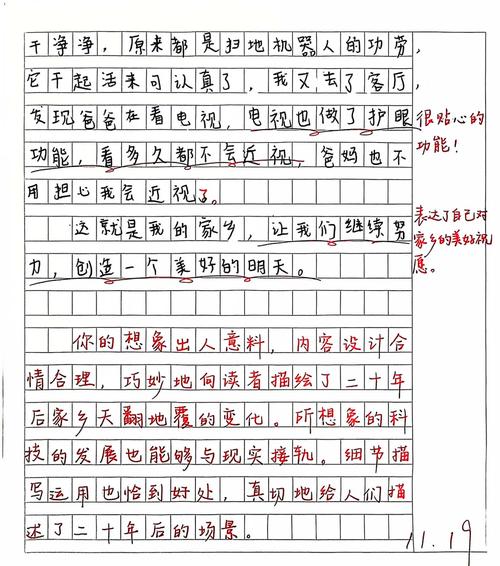 干净净，原来都是扫地机器人的功劳，
它干起活来可认真了，我又去了客厅，
发现爸爸在看电视，电视也做了护眼
很贴心的
功能，看多久都不会近视，爸妈也不
功能！
用担心我会近视了。
这就是我的家乡，让我们继续努
表达了自己对
力，创造一个美好的明天。
家乡的美好祝
愿。
你的想象出人意料，内容设计合
情合理，巧妙地向读者描绘了二十年
后家乡天翻地覆的变化。所想象的科
技的发展也能够与现实接轨。细节描
写运用也恰到好处，真切地给人们描
述了二十年后的场景。
11.19